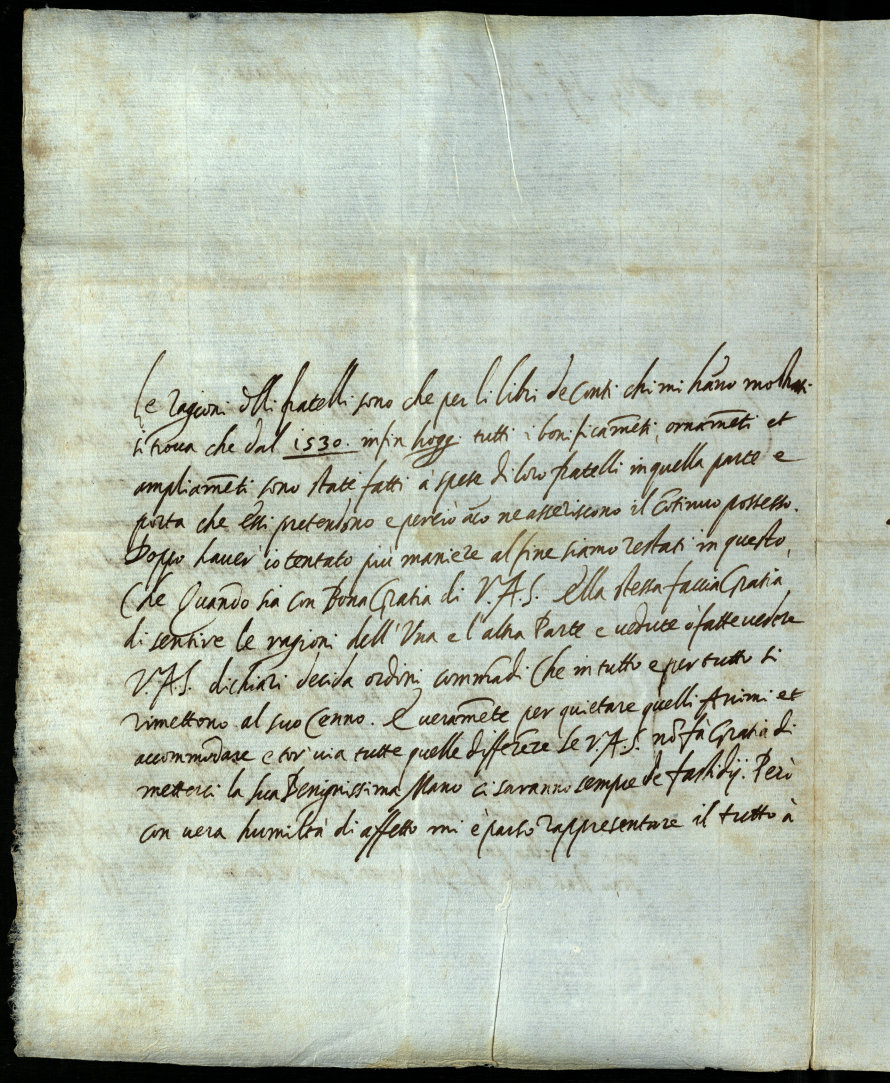 Le ragioni dlli fratelli sono che per li libri de Conti chi mi hāno mostrati
si trova che dal 1530. infin hoggi tutti i bonificamēti, ornamēti et
ampliamēti sono stati fatti à spese di loro fratelli in quella parte e
porta che essi pretendono e perciò āco ne asseriscono il Cōtinuo possesso.
Doppo haver' io tentato più maniere al fine siamo restati in questo,
Che Quando sia con Bona Gratia di V.A.S. Ella stessa faccia Gratia
di sentire le ragioni dell' Una e l'altra Parte e vedute ò fatte vedere
V.A.S. dichiari decida ordini commādi Che in tutto e per tutto si
rimettono al suo Cenno. E veramēte per quietare quelli Animi et
accommodare e tor' via tutte quelle differēze se V.A.S. nō fà Gratia di
metterci la sua Benignissima Mano ci saranno sempre de fastidij. Però
con vera humiltà di affetto mi è parso rappresentare il tutto à